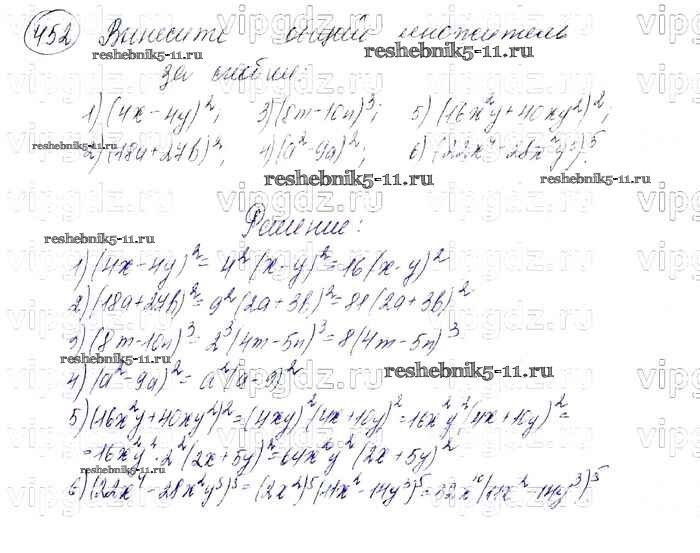 452 Вынесите общий множитель
за скобки:
1) (4x-4y)²; 3) (8m-10n)³; 5) (16x²y+40xy²)²;
2) (18a+27b)²; 4) (a²-9a)²; 6) (22x⁴-28x²y³)⁵.
Решение:
1) (4x-4y)²= 4²(x-y)²=16(x-y)²
2) (18a+27b)²=9²(2a+3b)²=81(2a+3b)²
3) (8m-10n)³=2³(4m-5n)³=8(4m-5n)³
4) (a²-9a)²=a²(a-9)²
5) (16x²y+40xy²)²=(4xy)²(4x+10y)²=16x²y²(4x+10y)²=
=16x²y²·2²(2x+5y)²=64x²y²(2x+5y)²
6) (22x⁴-28x²y³)⁵=(2x²)⁵(11x²-14y³)⁵=32x¹⁰(11x²-14y³)⁵